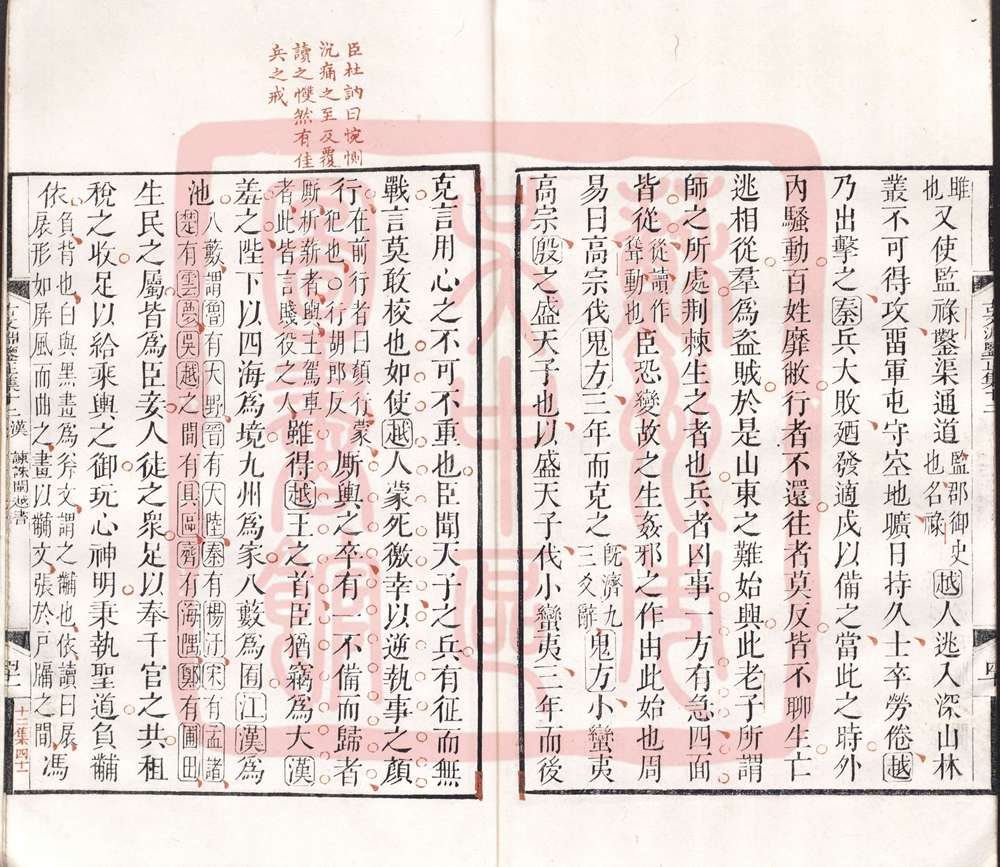 雎
也又使監祿鑿渠通道監郡御史也名祿越人逃入深山林
叢不可得攻畱軍屯守空地曠日持久士卒勞倦越
乃出擊之秦兵大敗廼發適戍以備之當此之時外
內騷動百姓靡敝行者不還往者莫反皆不聊生亡
逃相從羣爲盜賊於是山東之難始興此老子所謂
師之所處荆棘生之者也兵者凶事一方有急四面
皆從從讀作聳聳動也臣恐變故之生姦邪之作由此始也周
易曰高宗伐鬼方三年而克之旣濟九三爻辭鬼方小蠻夷
高宗殷之盛天子也以盛天子代小蠻夷三年而後
臣杜訥曰惋惻
沉痛之至反覆
讀之惻然有佳
兵之戒
克言用心之不可不重也臣聞天子之兵有征而無
戰言莫敢校也如使越人蒙死徼幸以逆執事之顏
行在前行者曰顏行蒙犯也○行胡郎反厮輿之卒有一不備而歸者
厮析薪者輿主駕車者此皆言賤役之人雖得越王之首臣猶竊爲大漢
羞之陛下以四海爲境九州爲家八藪爲囿江漢爲
池八藪謂魯有大野晉有大陸秦有楊汙宋有孟諸楚有雲夢吳越之間有具區齊有海隅鄭有圃田
生民之屬皆爲臣妾人徒之衆足以奉千官之共租
稅之收足以給乘輿之御玩心神明秉執聖道負黼
依負背也白與黑畫爲斧文謂之黼也依讀曰扆扆形如屏風而曲之畫以黼文張於戶牖之間馮
漢 諫誅閩越書
十二集四十